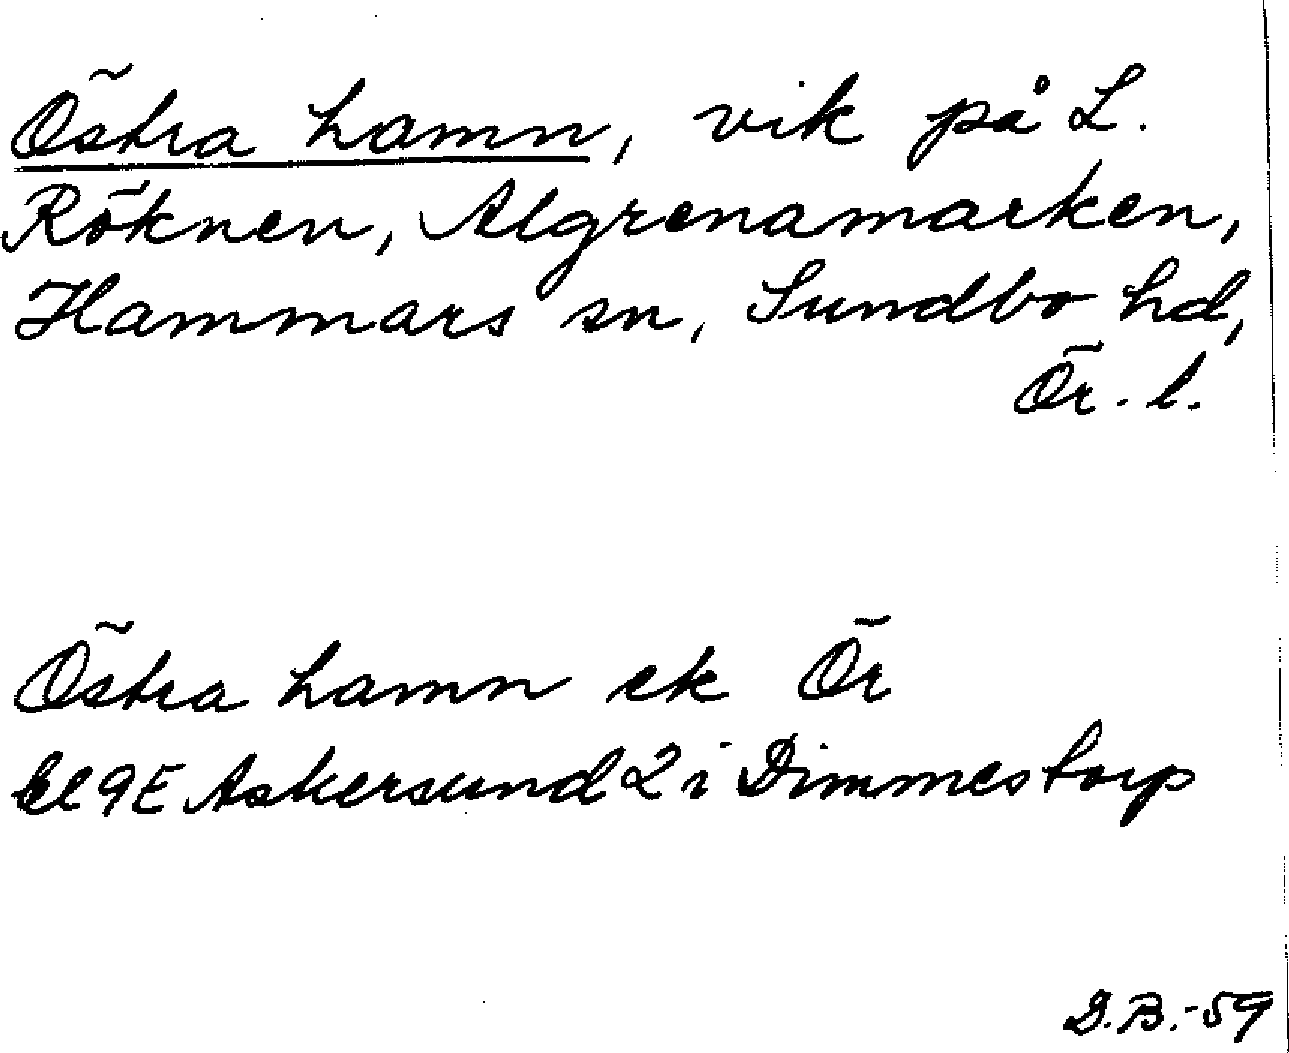 Östra hamn, vik på L.
Röknen, Algrenamarken,
Hammars sn, Sundbo hd,
Ör. l.
Östra hamn ek Ör
bl 9E Askersund 2 i Dimmestorp
D.B.-59